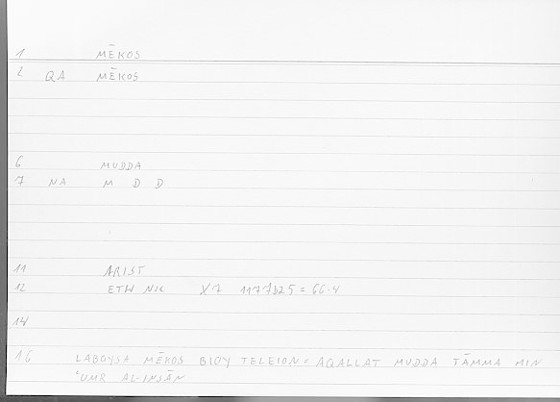 1 MĒKOS
2 QA MĒKOS
6 MUDDA
7 NA M D D
11 ARIST
12 ETH NIC X7 1177b25 = 66.4
14
16 LABOYSA MĒKOS BIOY TELEION = AQALLAT MUDDA TĀMMA MIN
ʿUMR AL-INSĀN